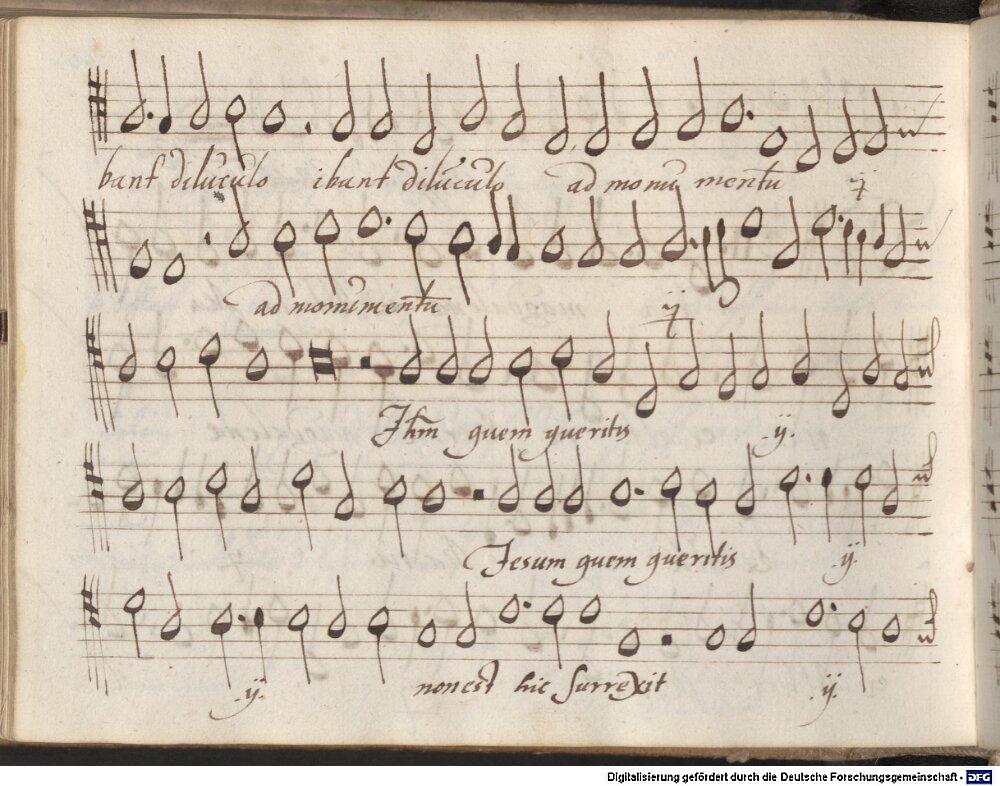 bant diluculo ibant diluculo ad monu mentū ij
ad monumentū ij
Jhm̄ quem queritis ij.
Jesum quem queritis ij.
ij. non est hic surrexit ij.
Digitalisierung gefördert durch die Deutsche Forschungsgemeinschaft - DFG